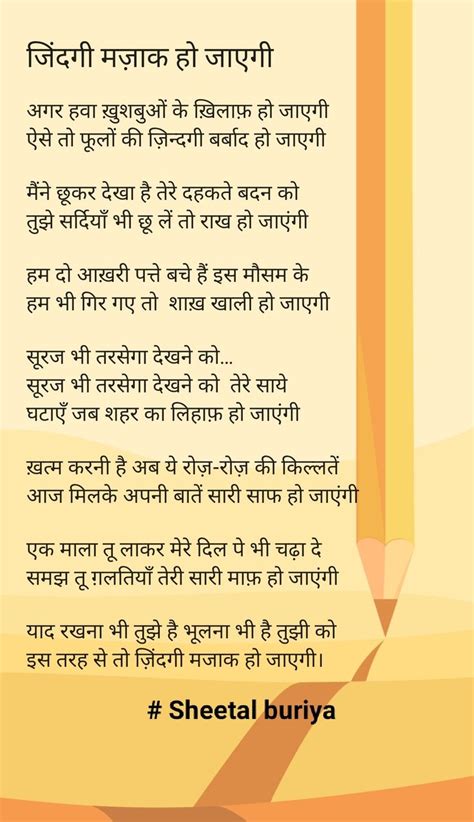 जिंदगी मज़ाक हो जाएगी
अगर हवा ख़ुशबुओं के ख़िलाफ़ हो जाएगी
ऐसे तो फूलों की ज़िन्दगी बर्बाद हो जाएगी
मैंने छूकर देखा है तेरे दहकते बदन को
तुझे सर्दियाँ भी छू लें तो राख हो जाएंगी
हम दो आख़री पत्ते बचे हैं इस मौसम के
हम भी गिर गए तो शाख़ खाली हो जाएगी
सूरज भी तरसेगा देखने को...
सूरज भी तरसेगा देखने को तेरे साये
घटाएँ जब शहर का लिहाफ़ हो जाएंगी
ख़त्म करनी है अब ये रोज़-रोज़ की किल्लतें
आज मिलके अपनी बातें सारी साफ हो जाएंगी
एक माला तू लाकर मेरे दिल पे भी चढ़ा दे
समझ तू ग़लतियाँ तेरी सारी माफ़ हो जाएंगी
याद रखना भी तुझे है भूलना भी है तुझी को
इस तरह से तो ज़िंदगी मजाक हो जाएगी।
# Sheetal buriya